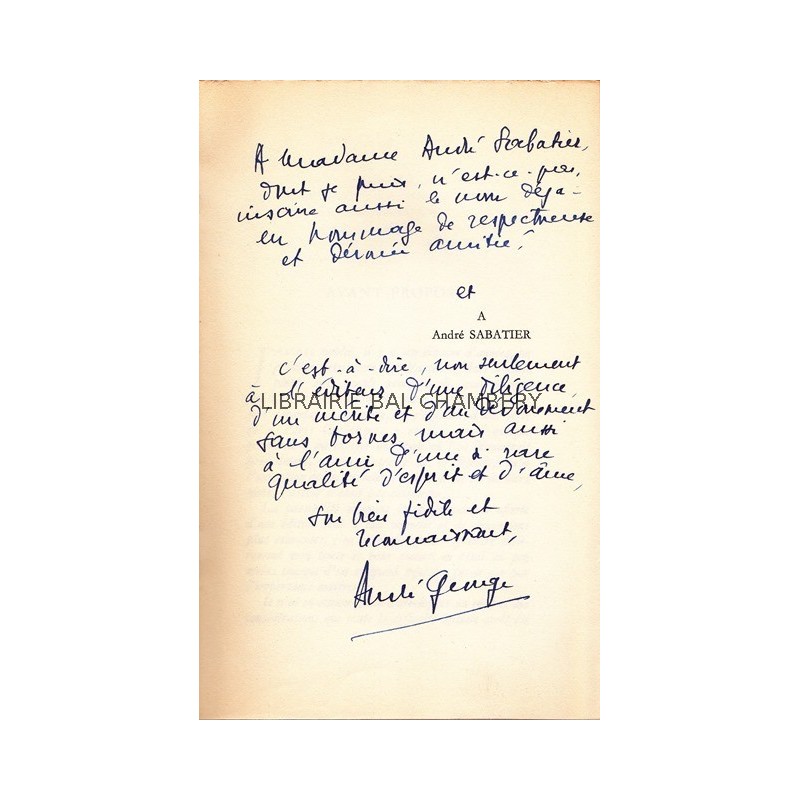 A Madame André Sabatier,
dont je puis, n'est-ce-pas,
inscrire aussi le nom déjà -
en hommage de respectueuse
et dévouée amitié.
et
A
André SABATIER
c'est-à-dire, non seulement
à l'éditeur d'une diligence,
LIBRAIRIE BAL CHAMBERY
d'un mérite et d'un dévouement
sans bornes, mais aussi
à l'ami d'une si rare
qualité d'esprit et d'âme,
son bien fidèle et
reconnaissant,
André George